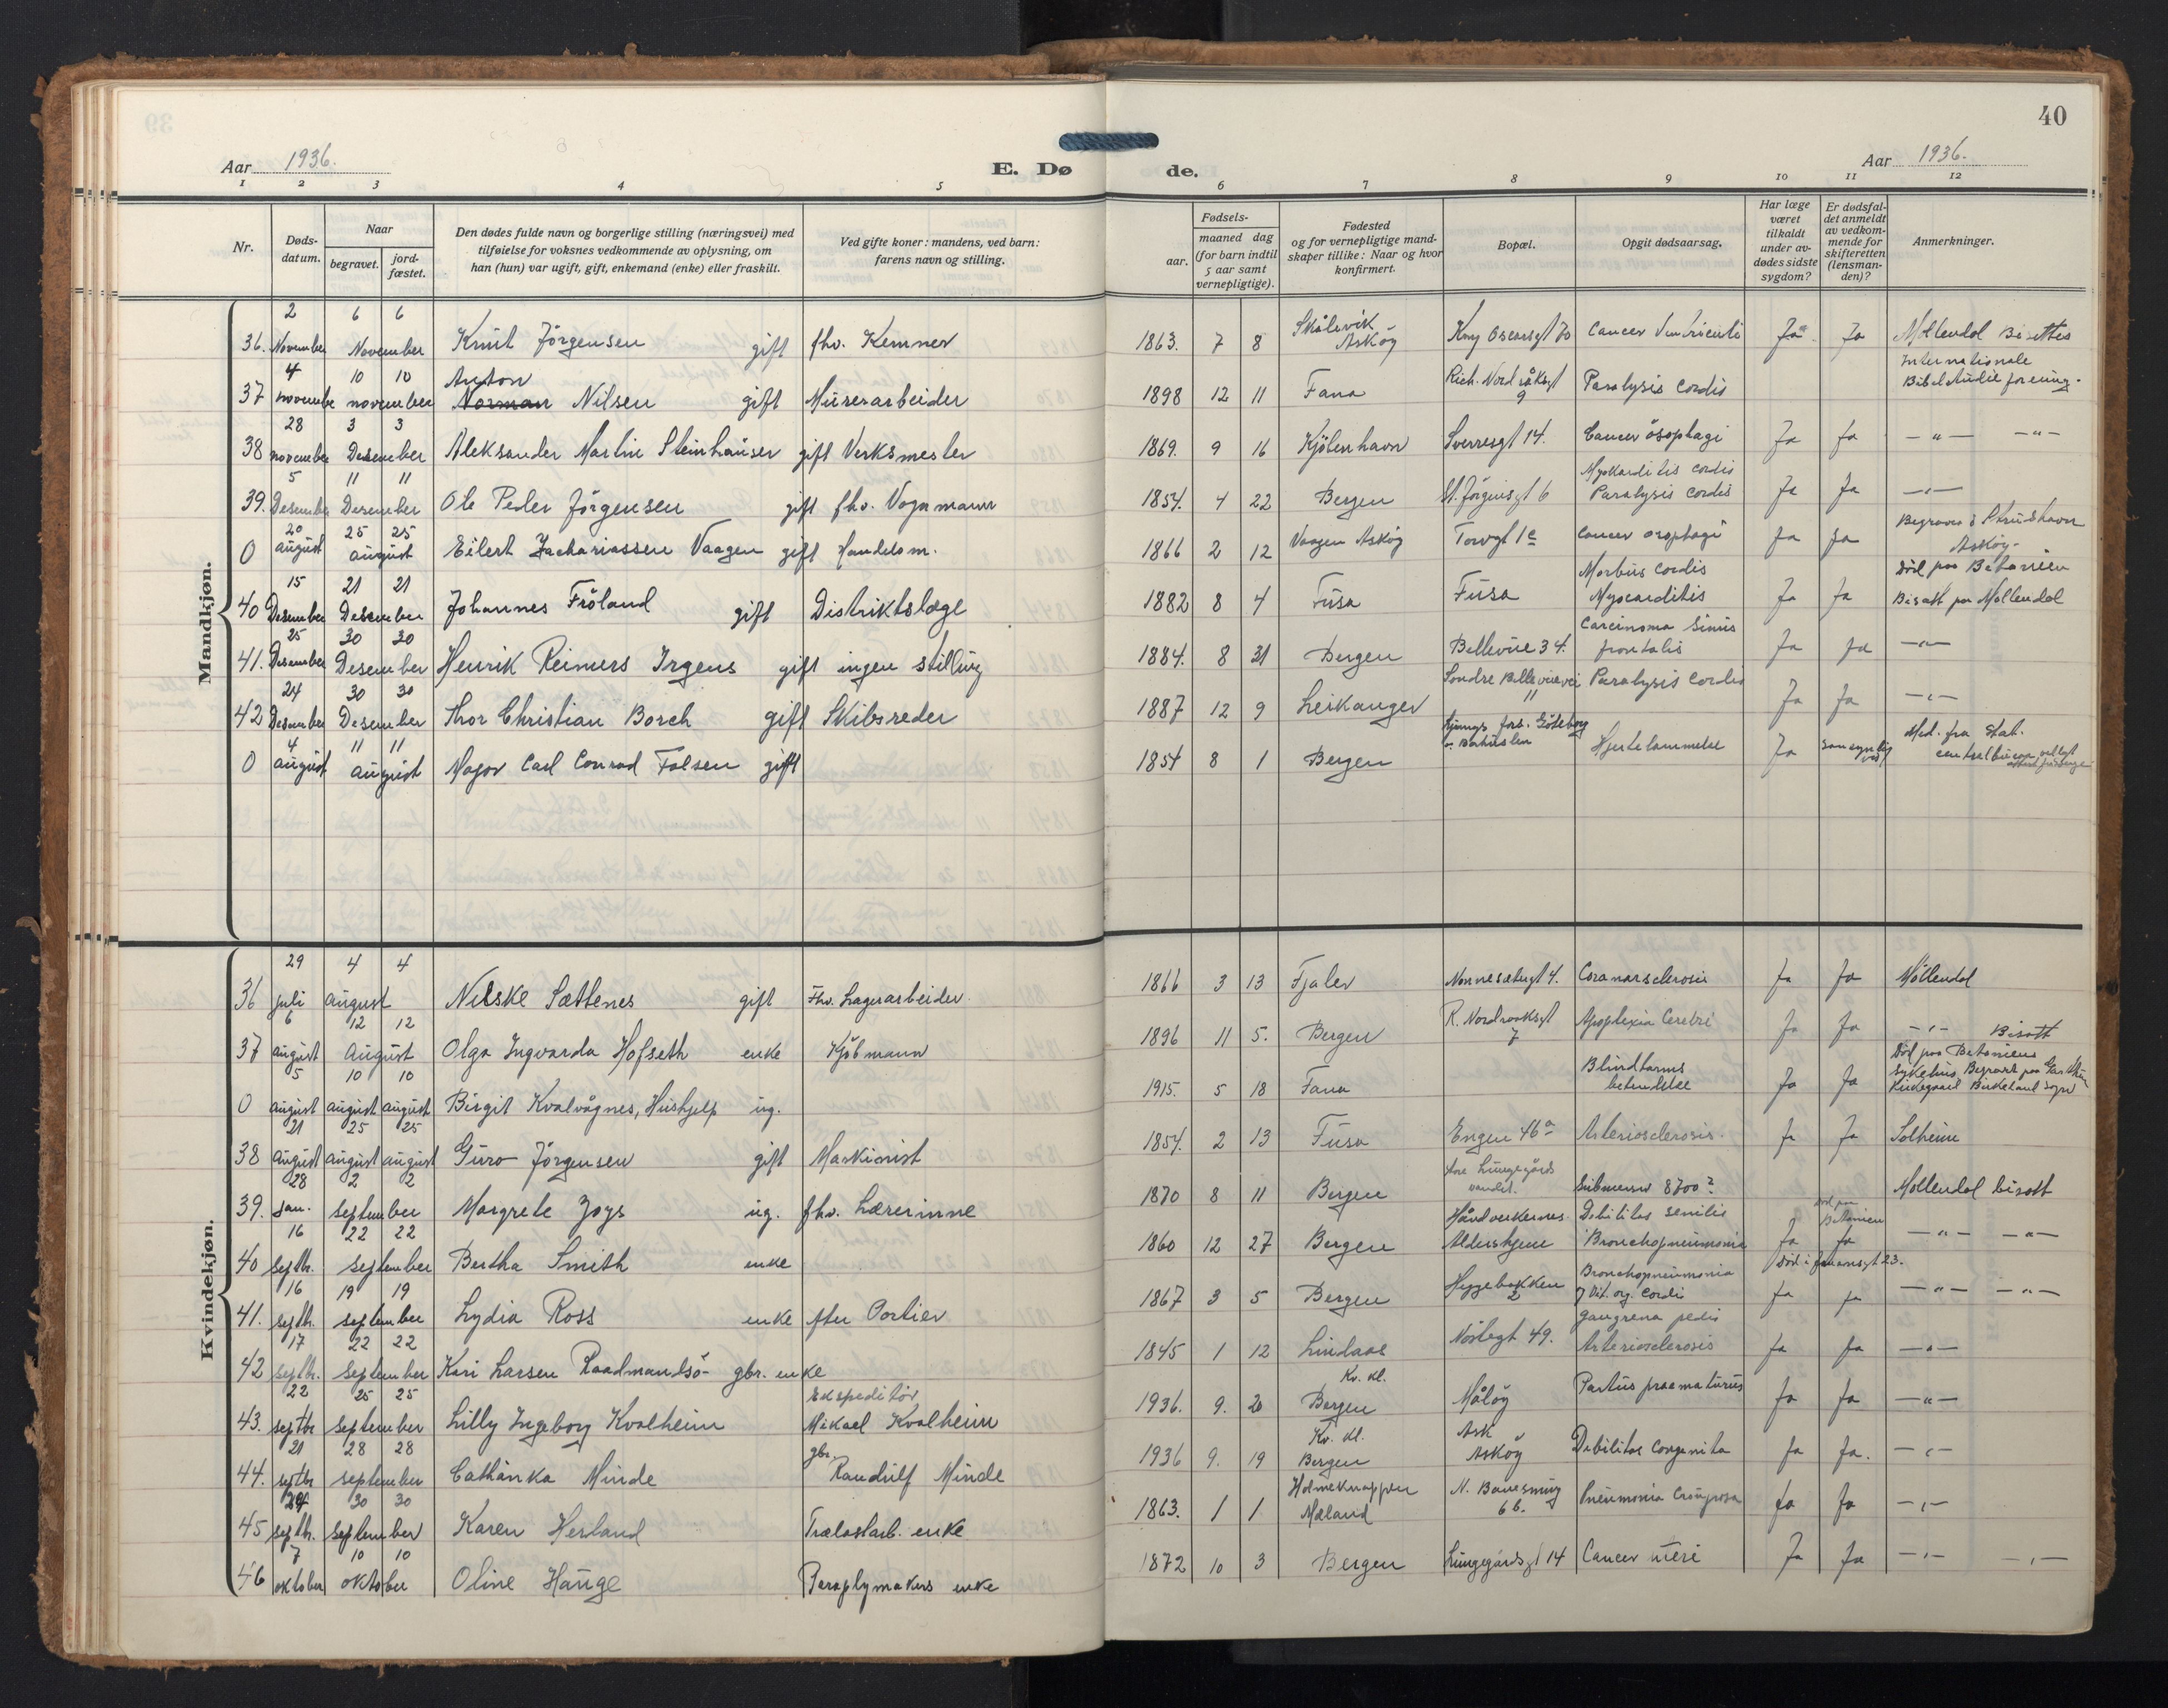 40
Aar 1936. E. Dø de. Aar 1936.
1 2 3 4 5 6 7 8 9 10 11 12
Nr. Døds-datum. Naar begravet. jord-fæstet. Den dødes fulde navn og borgerlige stilling (næringsvei) med tilføielse for voksnes vedkommende av oplysning, om han (hun) var ugift, gift, enkemand (enke) eller fraskilt. Ved gifte koner: mandens, ved barn: farens navn og stilling. Fødsels- aar. maaned dag (for barn indtil 5 aar samt vernepligtige). Fødested og for vernepligtige mand-skaper tillike: Naar og hvor konfirmert. Bopæl. Opgit dødsaarsag. Har læge været tilkaldt under av-dødes sidste sygdom? Er dødsfal-det anmeldt av vedkom-mende for skifteretten (lensman-den)? Anmerkninger.
Mandkjøn.
36. 2 November 6 6 November Knut Jörgensen gift fhv. Kemner 1863. 7 8 Skålevik Asköy Kong Oscarsgt 70 Cancer Ventriculi Ja Ja Møllendal Bisettes
37 4 november 10 10 november Anton Norman Nilsen gift Murerarbeider 1898 12 11 Fana Rich. Nordråksgt 9 Paralysis cordis Internationale Bibelstudie forening.
38 28 november 3 3 Desember Aleksander Martin Steinhauser gift Verksmester 1869. 9 16 Kjöbenhavn Sverresgt 14. Cancer ösophagi Ja Ja —"— —"—
39. 5 Desember 11 11 Desember Ole Peder Jörgensen gift fhv. Vognmann 1854. 4 22 Bergen St. Jörgensgt 6 Myokarditis cordis Paralysis cordis Ja Ja —"—
0 20 august 25 25 august Eilert Zachariassen Vaagen gift Handelsm. 1866 2 12 Vaagen Asköy Torvgt 1c Cancer osophagi Ja Ja Begraves i Strudshavn Asköy.
40 15 Desember 21 21 Desember Johannes Fröland gift Distriktslæge 1882 8 4 Fusa Fusa Morbus Cordis Myocarditis Ja Ja Död paa Betanien Bisatt paa Møllendal
41. 25 Desember 30 30 Desember Henrik Reimers Irgens gift ingen stilling 1884. 8 31 Bergen Bellevue 34. Carcinoma Sinus frontalis Ja Ja —"—
42 24 Desember 30 30 Desember Thor Christian Borch gift Skibsreder 1887 12 9 Leikanger Søndre Bellevuevei 11 Paralysis Cordis Ja Ja —"—
0 4 august 11 11 august Major Carl Conrad Falsen gift 1854 8 1 Bergen Göteborg Bohuslen Hjertelammelse Ja Med. fra Stat. centralbureau
Kvindekjøn.
36 29 juli 4 4 august Nilske Sættenes gift Fhv. Lagerarbeider. 1866 3 13 Fjaler Nonnesætergt 4. Coronarsclerosis Ja Ja Möllendal
37 6 august 12 12 august Olga Ingvarda Hofseth enke Kjöbmann 1896 11 5. Bergen R. Nordraaksgt 7 Apoplexia Cerebri Ja Ja —"— Bisatt
0 5 august 10 10 august august Birgit Kvalvågnes, Hushjelp ug. 1915. 5 18 Fana Blindtarms betendelse Ja Ja Död paa Betaniens Sykehus. Begravet paa Kirkegaard Birkeland Sogn
38 21 august 25 25 august august Guro Jörgensen gift Maskinist 1854. 2 13 Fusa Engen 46a Arteriosclerosis. Ja Ja Solheim
39. 28 jan. 2 2 september Margrete Joys ug. fhv. Lærerinne 1870 8 11 Bergen Store Lungegårds vandet. Submersio 8700? Møllendal bisatt
40 16 septbr. 22 22 september Bertha Smith enke 1860 12 27 Bergen Håndverkernes Aldershjem Debilitas senilis Bronchopneumonia Ja Ja Död paa Betanien —"— —"—
41. 16 septbr. 19 19 september Lydia Ross enke efter Portier 1867 3 5 Bergen Hyggebakken 2 Bronchopneumonia Vit. org. Cordis Ja Ja —"— —"—
42 17 septbr. 22 22 September Kari Larsen Raadmandsö gbr. enke 1845 1 12 Lindaas Nöstegt 49. Gangrena pedis Arteriosclerosis Ja Ja —"—
43. 22 septbr 25 25 September Lilly Ingeborg Kvalheim Ekspeditör Mikael Kvalheim 1936. 9. 20 Kv. Kl. Bergen Målöy Partus praematurus Ja Ja —"—
44. 21 septbr 28 28 september Cathinka Minde gbr. Randulf Minde 1936 9. 19 Kv. Kl. Bergen Ask Asköy Debilitas Congenita Ja Ja. —"—
45 septbr. 30 30 September Karen Herland Trælastarb. enke 1863. 1 1 Holmeknappen Mæland 6b. Pneumonia Crouposa Ja Ja —"—
46 7 oktober 10 10 oktober Oline Hauge Paraplymakers enke 1872 10 3 Bergen Lungegårdsgt 14 Cancer uteri Ja Ja —"— —"—